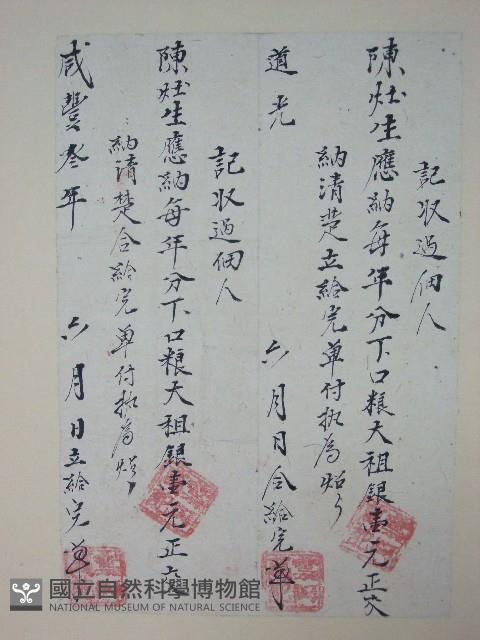 記收過佃人
陳灶生應納每年分下口粮大租銀壹元正
納清楚立給完單付执為炤
道光 六月日仝給完單
記收過佃人
陳灶生應納每年分下口粮大租銀壹元正
納清楚合給完單付执為炤
咸豐叁年 六月日立給完單
國立自然科學博物館
NATIONAL MUSEUM OF NATURAL SCIENCE